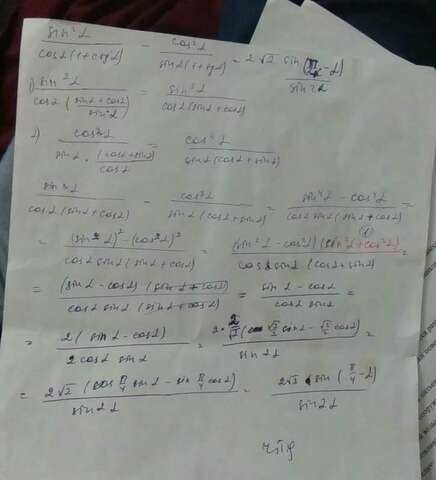 sin²α / cosα(1+ctgα) − cos²α / sinα(1+tgα) = 2√2 sin(π/4 − α) / sin2α
1) sin²α / cosα((sinα+cosα)/sinα) = sin³α / cosα(sinα+cosα)
2) cos²α / sinα·((cosα+sinα)/cosα) = cos³α / sinα(cosα+sinα)
sin³α / cosα(sinα+cosα) − cos³α / sinα(cosα+sinα) = sin⁴α − cos⁴α / cosα sinα(sinα+cosα) =
= (sin²α)² − (cos²α)² / cosα sinα(sinα+cosα) = (sin²α − cos²α)(sin²α+cos²α) / cosα sinα(cosα+sinα) =
= (sinα − cosα)(sinα+cosα) / cosα sinα(sinα+cosα) = sinα − cosα / cosα sinα =
= 2(sinα − cosα) / 2cosα sinα = 2·2/√2(√2/2 sinα − √2/2 cosα) / sin2α =
= 2√2(cos π/4 sinα − sin π/4 cosα) / sin2α = 2√2 sin(π/4 − α) / sin2α
чтд